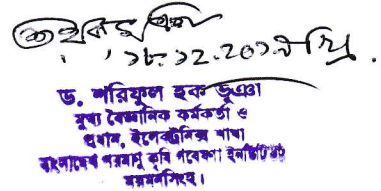 ১৮.১২.২০১
ড. শরিফুল হক ভূঞা
মুখ্য বৈজ্ঞানিক কর্মকর্তা ও
প্রধান, ইলেকট্রনিক্স শাখা
বাংলাদেশ পরমাণু কৃষি গবেষণা ইনস্টিটিউট
ময়মনসিংহ।